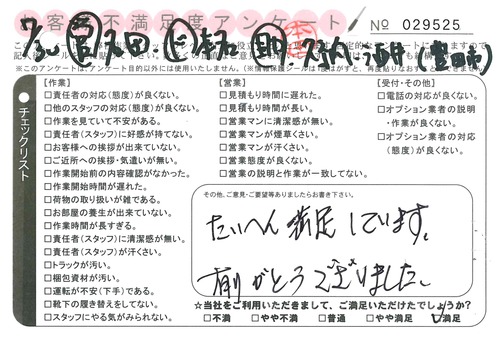 お客様不満足度アンケート
No 029525
※このアンケートは、アンケート目的以外には使用いたしません。
チェックリスト
【作業】
□責任者の対応(態度)が良くない。
□他のスタッフの対応(態度)が良くない。
□作業を見ていて不安がある。
□責任者(スタッフ)に好感が持てない。
□お客様への挨拶が出来ていない。
□ご近所への挨拶・気遣いが無い。
□作業開始前の内容確認がなかった。
□作業開始時間が遅れた。
□荷物の取り扱いが雑である。
□お部屋の養生が出来ていない。
□作業時間が長すぎる。
□責任者(スタッフ)に清潔感が無い。
□責任者(スタッフ)が汗くさい。
□トラックが汚い。
□梱包資材が汚い。
□運転が不安(下手)である。
□靴下の履き替えをしてない。
□スタッフにやる気がみられない。
【営業】
□見積もり時間に遅れた。
□見積もり時間が長い。
□営業マンに清潔感が無い。
□営業マンが煙草くさい。
□営業マンが汗くさい。
□営業態度が良くない。
□営業の説明と作業が一致してない。
【受付・その他】
□電話の対応が良くない。
□オプション業者の説明
・作業が良くない。
□オプション業者の対応
(態度)が良くない。
その他、ご意見・ご要望等ありましたらお書き下さい。
たいへん満足しています。
有りがとうございました。
☆当社をご利用いただきまして、ご満足いただけたでしょうか?
□不満 □やや不満 □普通 □やや満足 ☑満足